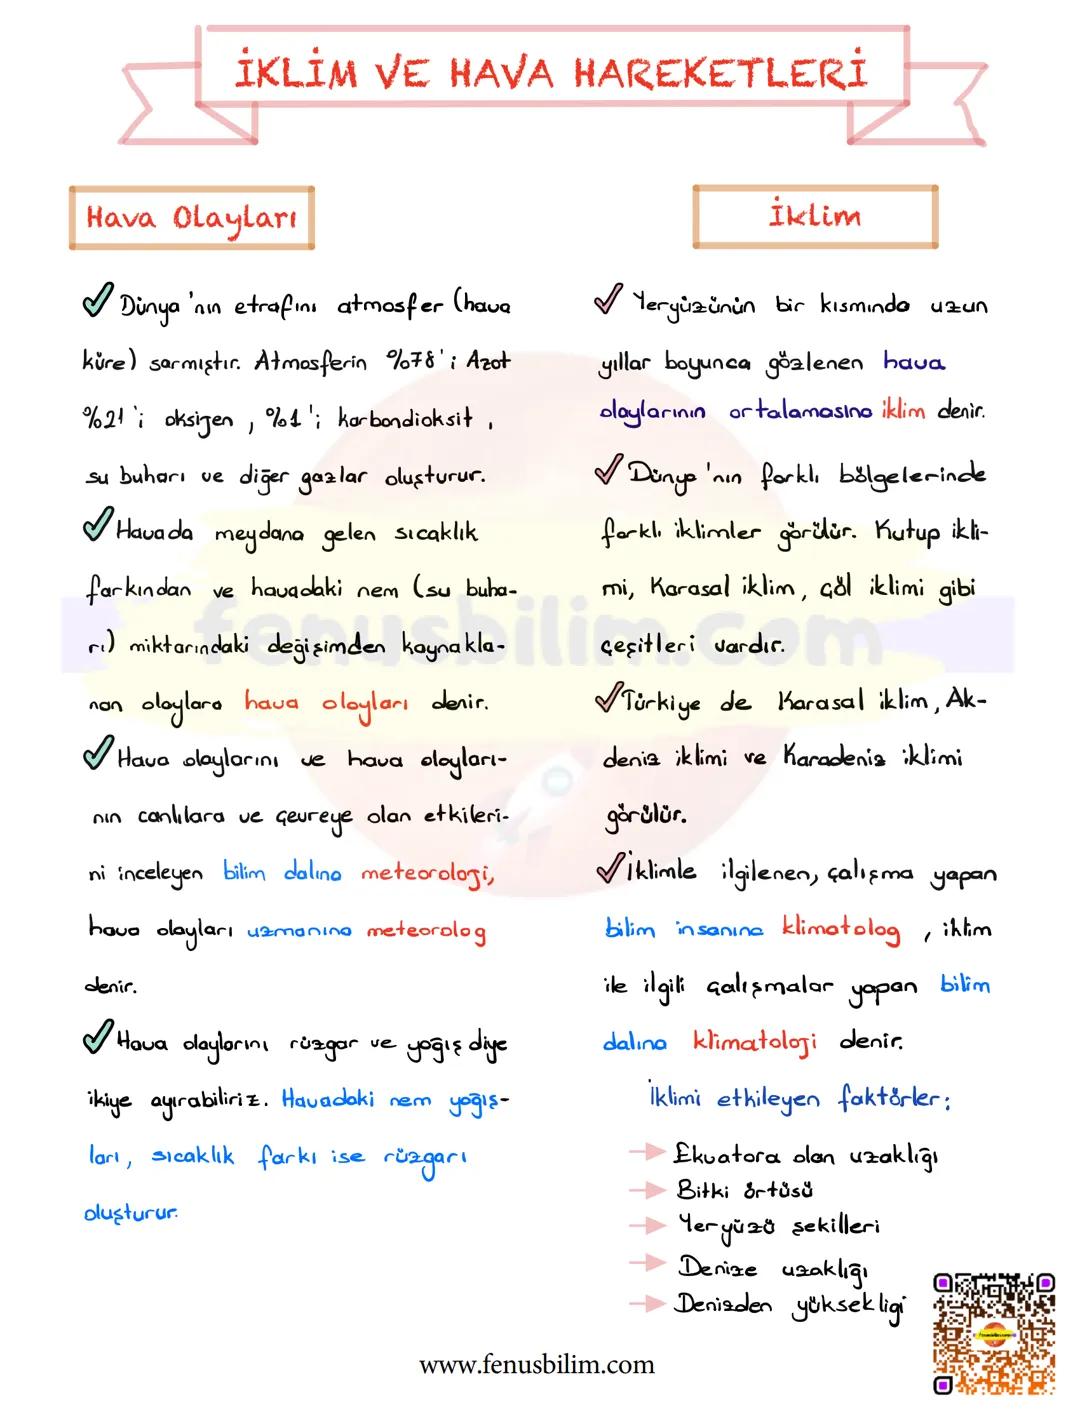 İKLİM VE HAVA HAREKETLERİ
Hava Olayları
✓ Dünya'nın etrafını atmosfer (hava
küre) sarmıştır. Atmosferin %78'i Azot
%21'i oksijen, %1'i karbondioksit,
su buharı ve diğer gazlar oluşturur.
✓ Havada meydana gelen sıcaklık
farkından ve havadaki nem (su buha-
rı) miktarındaki değişimden kaynakla-
nan olaylara hava olayları denir.
✓ Hava olaylarını ve hava olayları-
nın canlılara ve çevreye olan etkileri-
ni inceleyen bilim dalına meteoroloji,
hava olayları uzmanına meteorolog
denir.
✓ Hava olaylarını rüzgar ve yağış diye
ikiye ayırabiliriz. Havadaki nem yağış-
ları, sıcaklık farkı ise rüzgarı
oluşturur.
İklim
✓ Yeryüzünün bir kısmında uzun
yıllar boyunca gözlenen hava
olaylarının ortalamasına iklim denir.
✓ Dünya'nın farklı bölgelerinde
farklı iklimler görülür. Kutup ikli-
mi, Karasal iklim, Çöl iklimi gibi
çeşitleri vardır.
✓ Türkiye de Karasal iklim, Ak-
deniz iklimi ve Karadeniz iklimi
görülür.
✓ İklimle ilgilenen, çalışma yapan
bilim insanına klimatolog, iklim
ile ilgili çalışmalar yapan bilim
dalına klimatoloji denir.
İklimi etkileyen faktörler:
Ekvatora olan uzaklığı
Bitki örtüsü
Yeryüzü şekilleri
Denize uzaklığı
Denizden yüksekligi
fenusbilim.com
www.fenusbilim.com